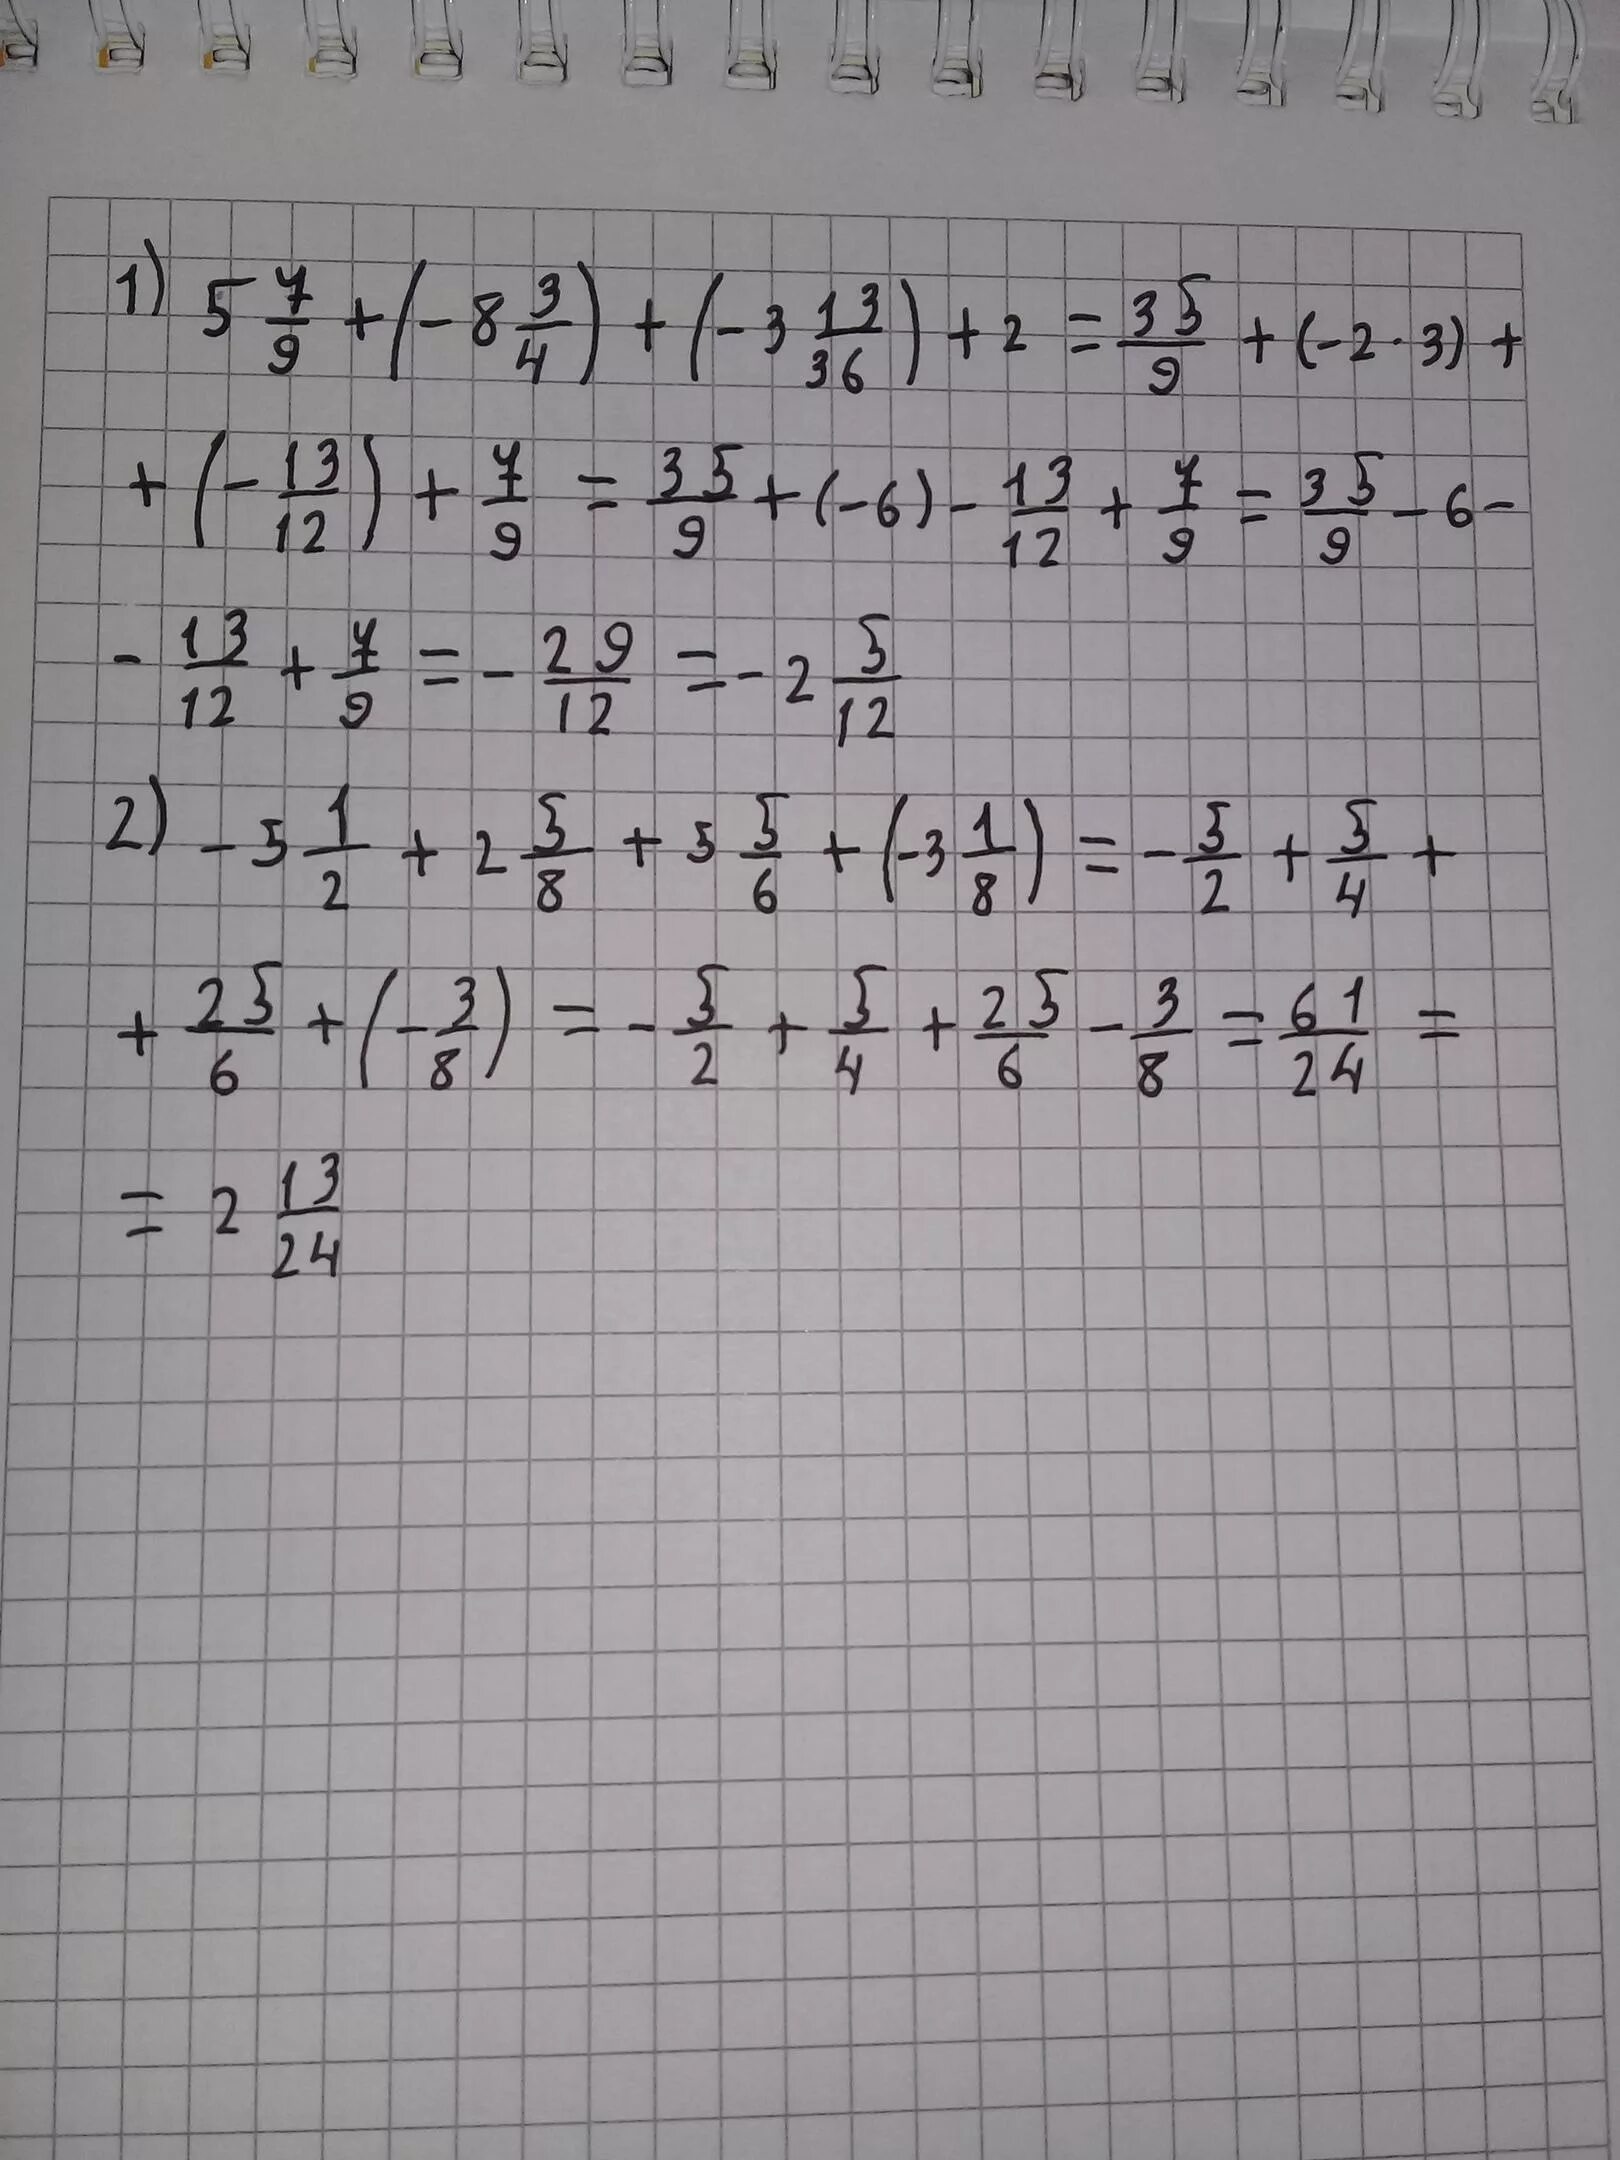 1) 5 7/9 + (- 8 3/4) + (- 3 13/36) + 2 = 35/9 + (- 2 · 3) +
+ (- 13/12) + 7/9 = 35/9 + (- 6) - 13/12 + 7/9 = 35/9 - 6 -
- 13/12 + 7/9 = - 29/12 = - 2 5/12
2) - 5 1/2 + 2 5/8 + 5 5/6 + (- 3 1/8) = - 5/2 + 5/4 +
+ 25/6 + (- 3/8) = - 5/2 + 5/4 + 25/6 - 3/8 = 61/24 =
= 2 13/24